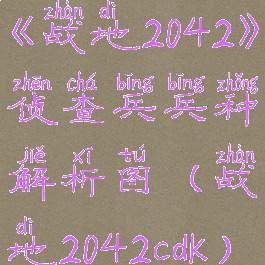 zhàn dì
《战地2042》
zhēn chá bīng bīng zhǒng
侦查兵兵种
jiě xī tú zhàn
解析图（战
dì
地2042cdk）